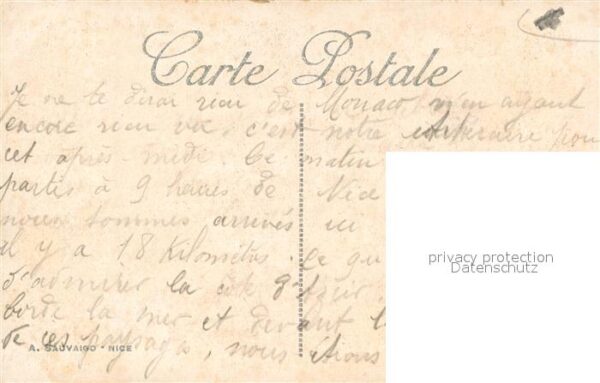 Carte Postale
Je ne te dirai rien de Monaco, n'en ayant
encore rien vu, c'est notre itinéraire pour
cet après-midi. Ce matin
partis à 9 heures de Nice
nous sommes arrivés ici
il y a 18 kilomètres. Ce qui
d'admirer la côte d'Azur,
borde la mer et devant l
de ces paysages, nous étions
A. SAUVAIGO - NICE
privacy protection
Datenschutz